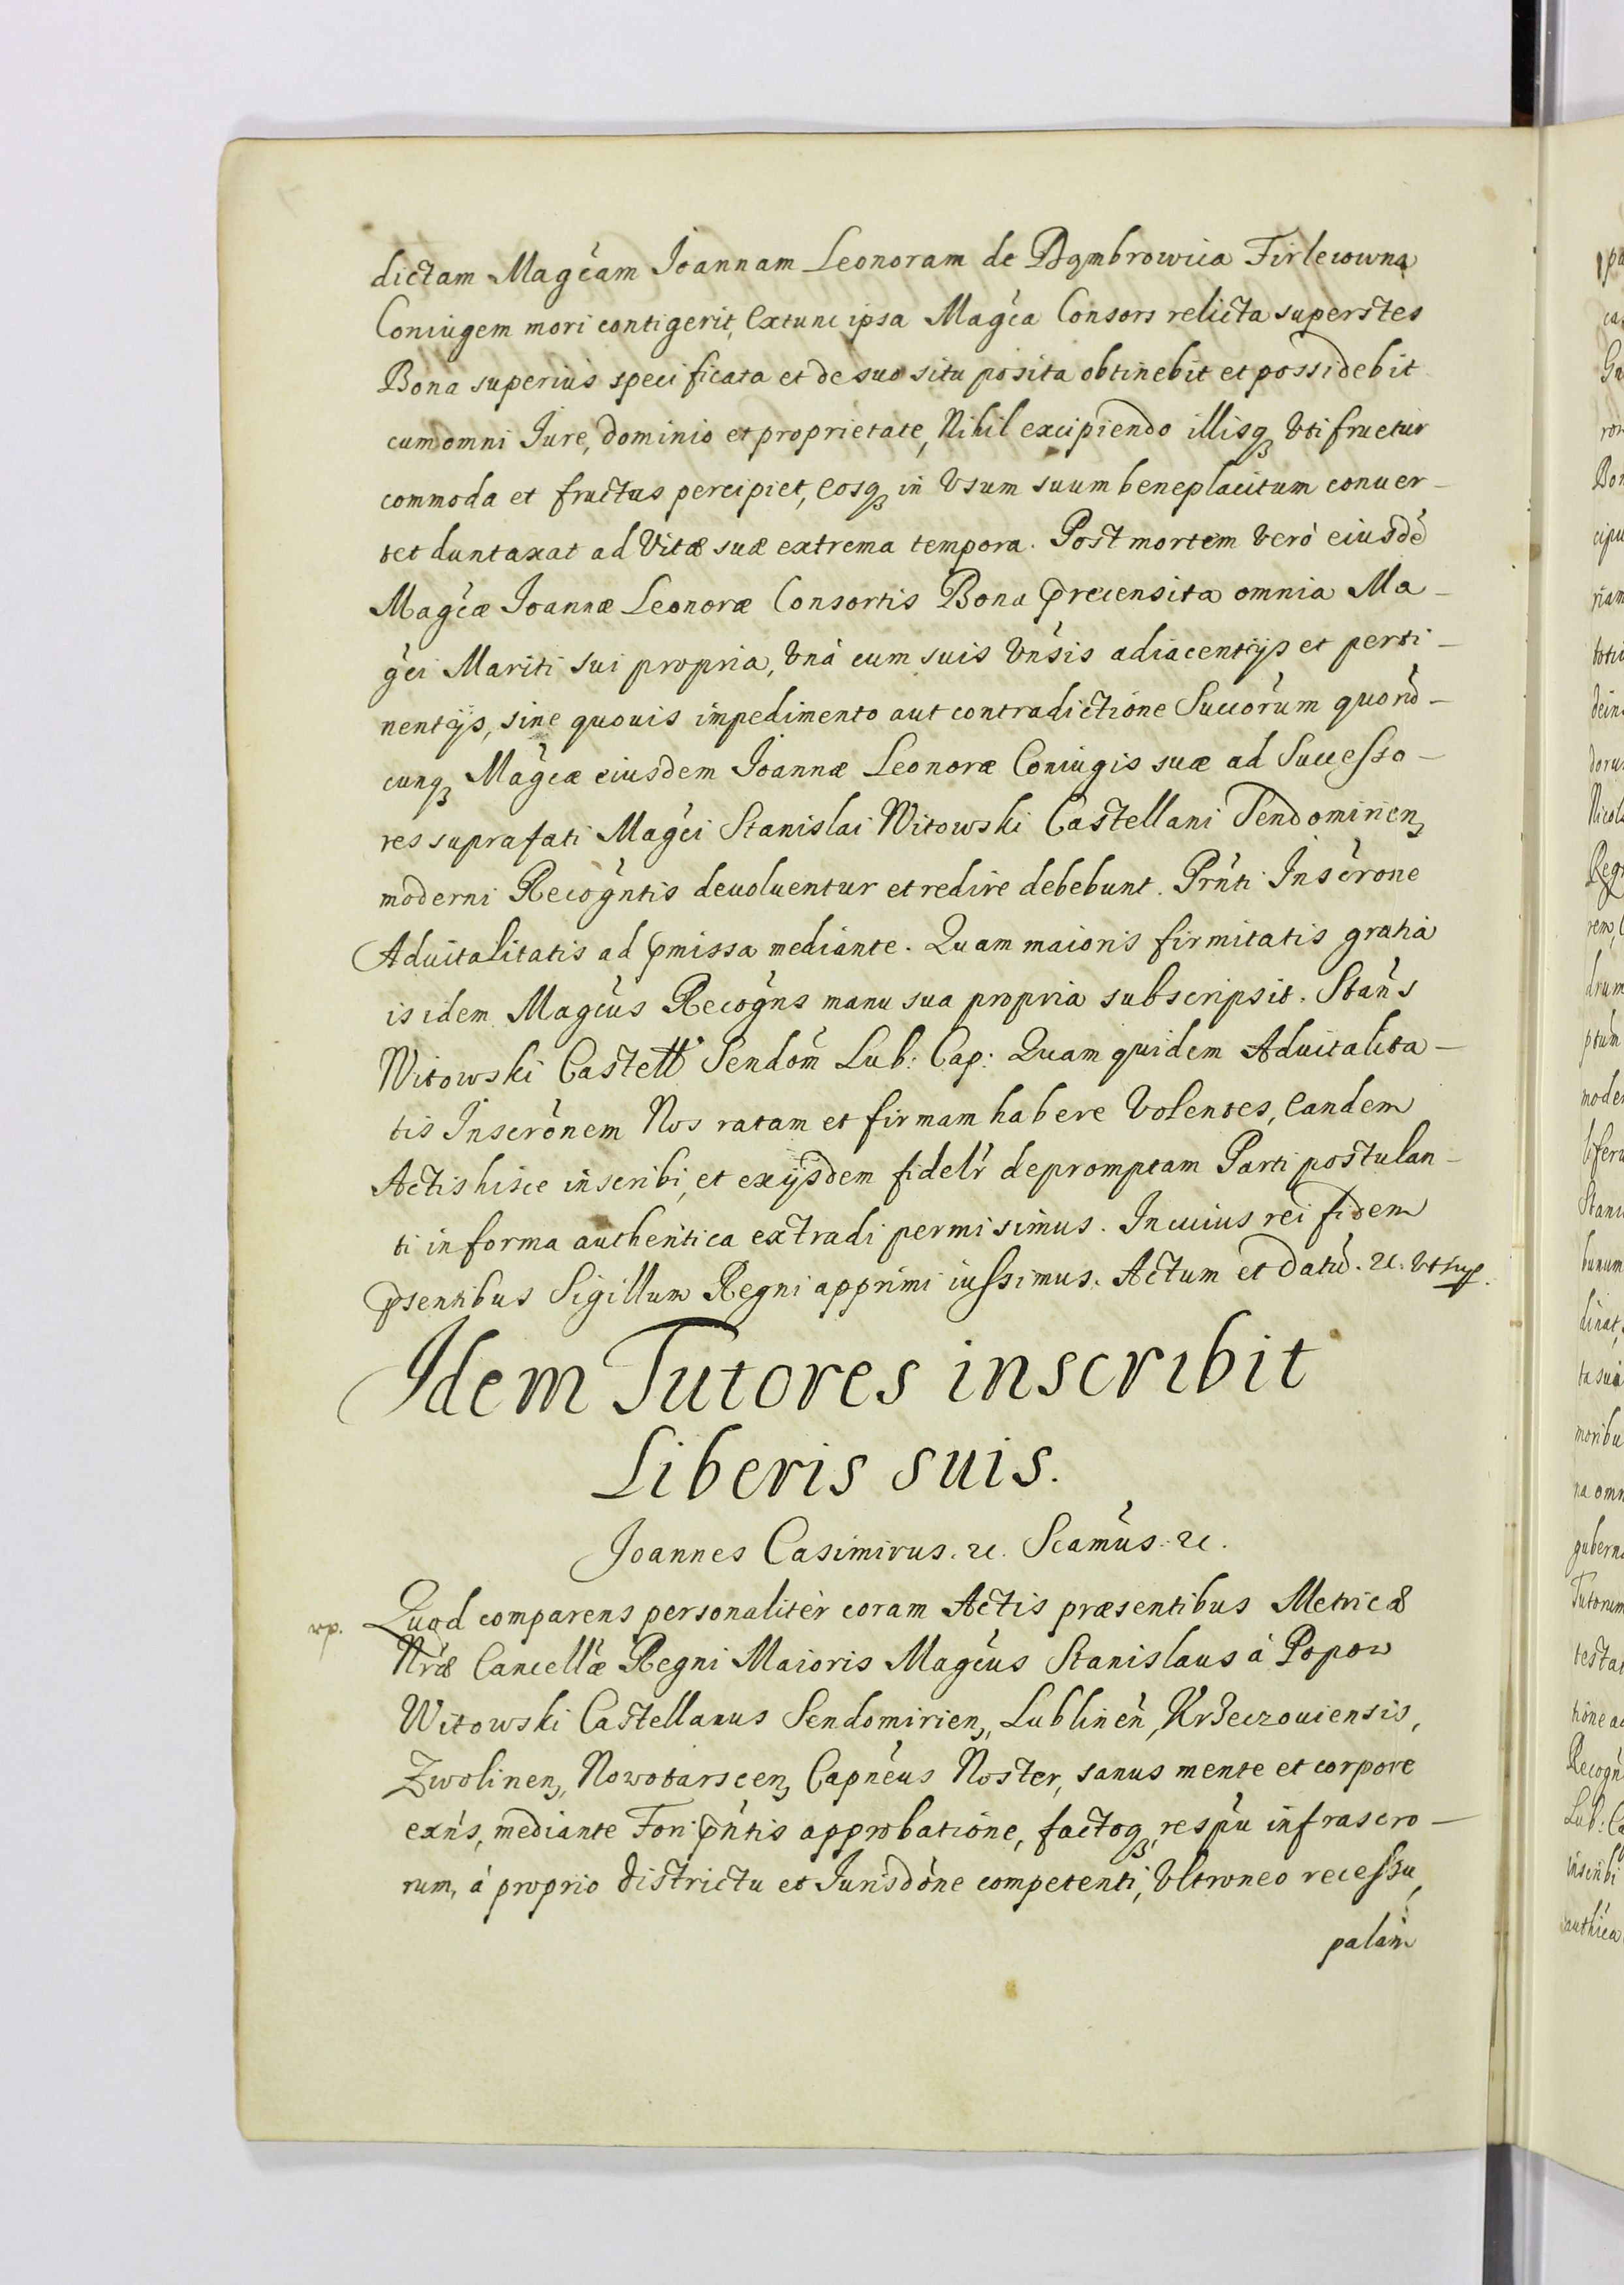 dictam Magcam Joannam Leonoram de Dąmbrowica Firleiowna
Coniugem mori contigerit, Extunc ipsa Magca Consors relicta superstes
Bona superius specificata et de suo situ posita obtinebit et possidebit
cum omni Jure, dominio et proprietate, Nihil excipiendo illisqꝫ Vti fruetur
commoda et fructus percipiet, Eosqꝫ in Vsum suum beneplacitum conuer-
tet duntaxat ad Vitæ suæ extrema tempora. Post mortem Verò eiusdē
Magcæ Joannæ Leonoræ Consortis Bona precensita omnia Ma-
gci Mariti sui propria, Vnà cum suis Vnsis adiacentijs et perti-
nentijs, sine quouis impedimento aut contradictione Succorum quorū-
cunqꝫ Magcæ eiusdem Joannæ Leonoræ Coniugis suæ ad Successo-
res suprafati Magci Stanislai Witowski Castellani Sendomirienꝫ
moderni Recogntis deuoluentur et redire debebunt. Prnti Inscrone
Aduitalitatis ad pmissa mediante. Quam maioris firmitatis gratia
is idem Magcus Recogns manu sua propria subscripsit. Stans
Witowski Castell Sendom Lub: Cap: Quam quidem Aduitalita-
tis Inscronem Nos ratam et firmam habere Volentes, Eandem
Actis hisce inscribi, et ex ijsdem fidelr depromptam Parti postulan-
ti in forma authentica extradi permisimus. In cuius rei fidem
psentibus Sigillum Regni apprimi iussimus. Actum et Datū. &c. Vt sup.
Idem Tutores inscribit
Liberis suis.
Joannes Casimirus. &c. Scamus. &c.
rp. Quod comparens personaliter coram Actis præsentibus Metricæ
Nræ Cancellæ Regni Maioris Magcus Stanislaus à Popow
Witowski Castellanus Sendomirienꝫ, Lublinen, Krzeczouiensis,
Zwolinenꝫ, Nowotarscenꝫ Capneus Noster, sanus mente et corpore
exns, mediante Fori pntis approbatione, factoqꝫ, respu infrascro-
rum, à proprio districtu et Jurisdone competenti, Vltroneo recessu,
palam